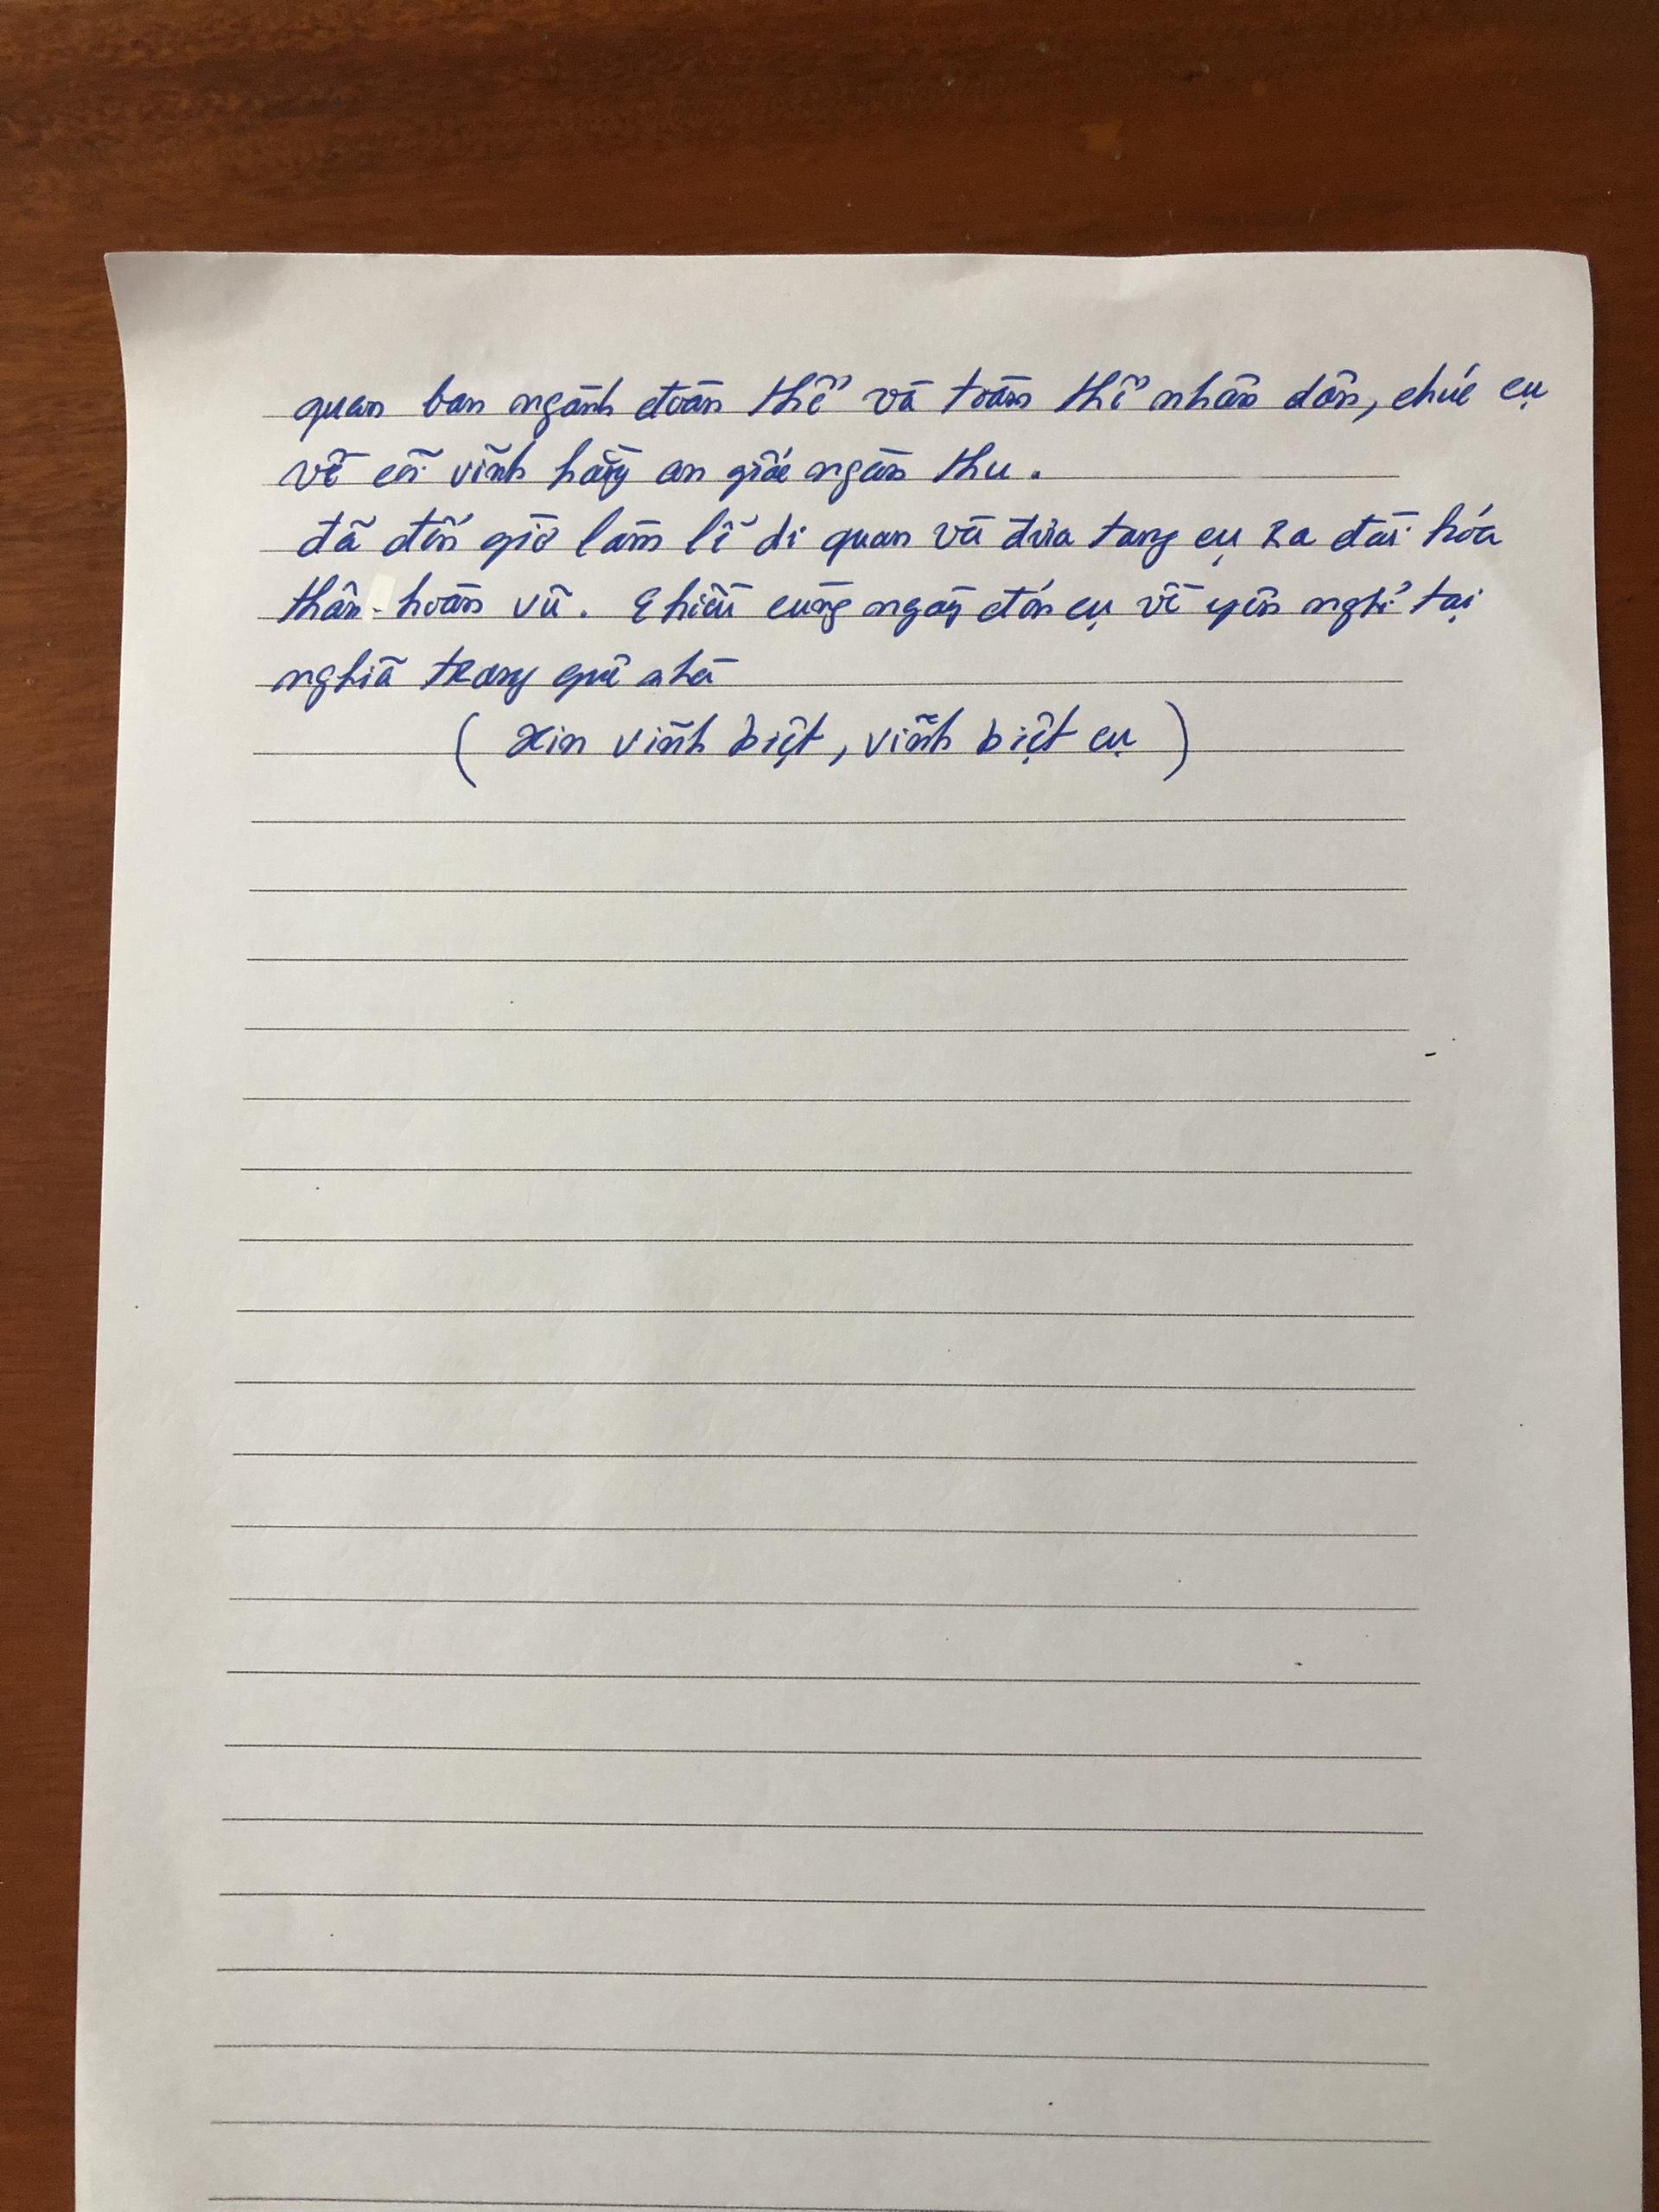 quan ban ngành đoàn thể và toàn thể nhân dân, chúc cụ
về cõi vĩnh hằng an giấc ngàn thu.
đã đến giờ làm lễ di quan và đưa tang cụ ra đài hóa
thân hoàn vũ. Chiều cùng ngày đón cụ về yên nghỉ tại
nghĩa trang quê nhà
( Xin vĩnh biệt, vĩnh biệt cụ )